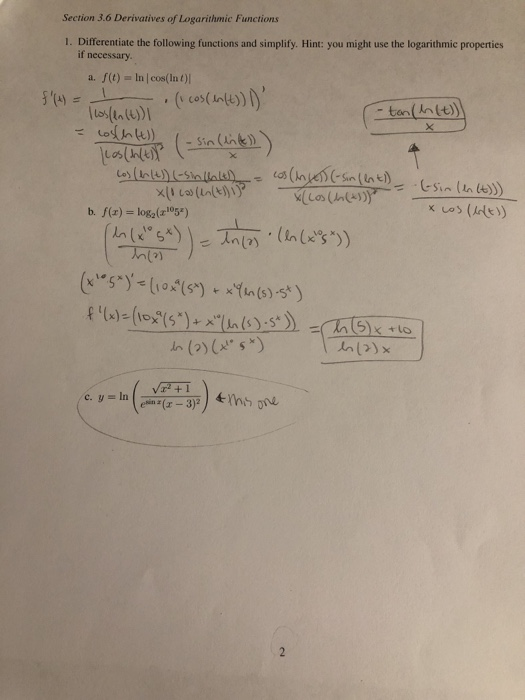 Section 3.6 Derivatives of Logarithmic Functions
1. Differentiate the following functions and simplify. Hint: you might use the logarithmic properties
if necessary.
a. f(t) = ln |cos(ln t)|
f'(x) = 1 / |cos(ln(t))| · (|cos(ln(t))|)'
= cos(ln(t)) / |cos(ln(t))|² (-sin(ln(t)) / x)
cos(ln(t))(-sin(ln(t))) / x(|cos(ln(t))|)² = cos(ln(t))(-sin(ln t)) / x(cos(ln(t)))² = (-sin(ln(t))) / x cos(ln(t))
-tan(ln(t)) / x
b. f(x) = log₂(x¹⁰5ˣ)
(ln(x¹⁰5ˣ) / ln(2)) = 1 / ln(2) · (ln(x¹⁰5ˣ))
(x¹⁰5ˣ)' = (10x⁹(5ˣ) + x¹⁰(ln(5)·5ˣ)
f'(x) = (10x⁹(5ˣ) + x¹⁰(ln(5)·5ˣ)) / ln(2)(x¹⁰5ˣ) = ln(5)x + 10 / ln(2)x
c. y = ln (√(x² + 1) / e^(sin x)(x − 3)²) ← this one
2